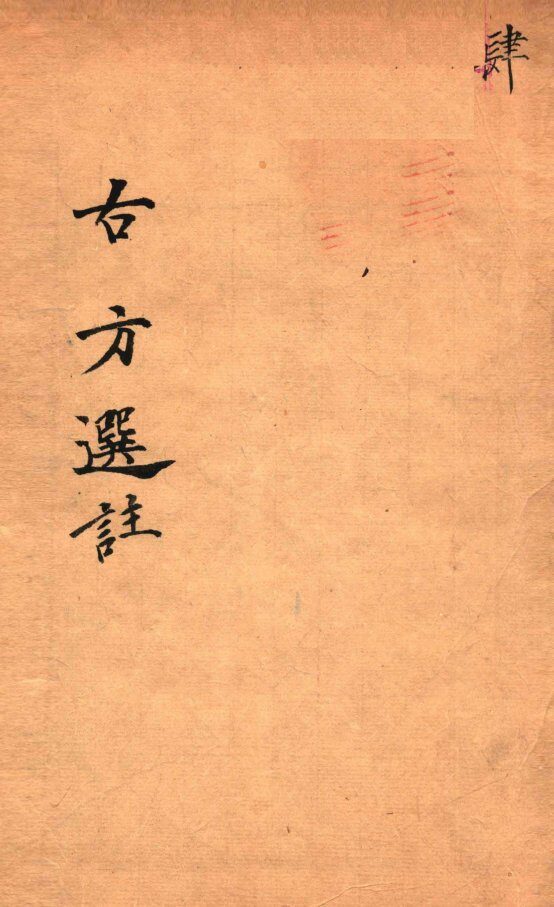 肆
古方選註